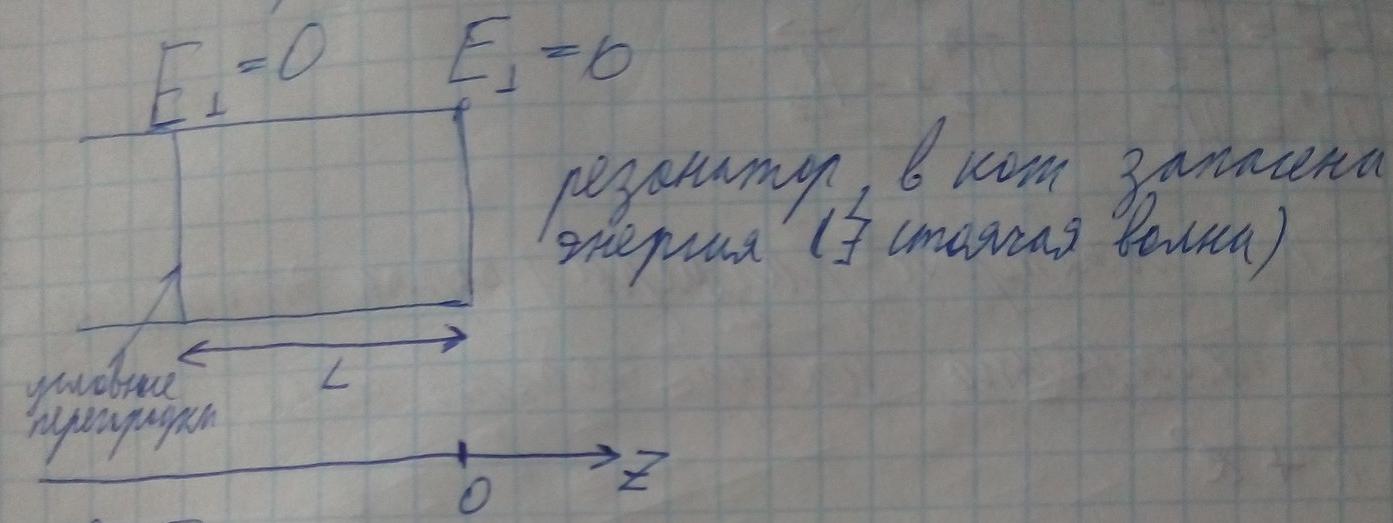 E⊥ = 0 E⊥ = 0
резонатор, в кот запасена
энергия (∃ стоячая волна)
L
условные
перегородки
Z
0